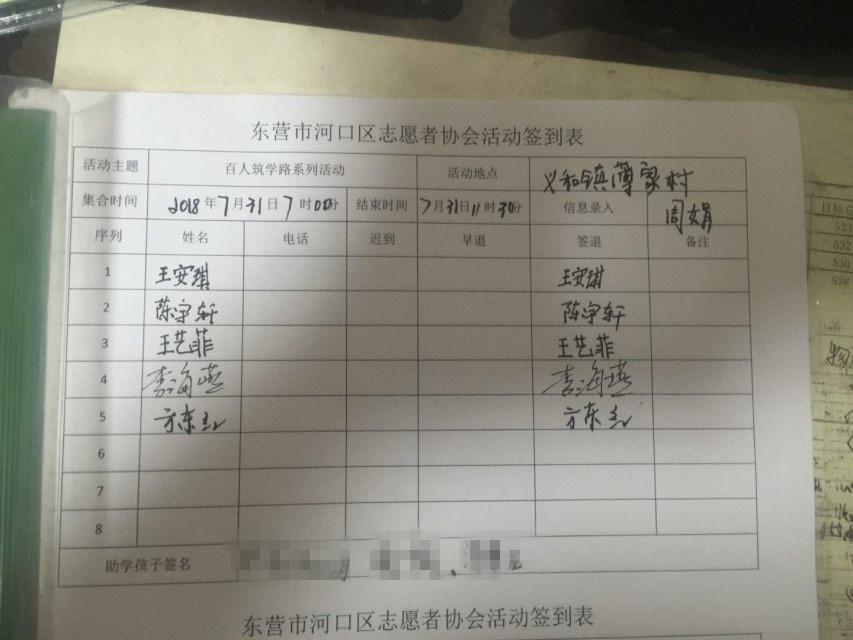 东营市河口区志愿者协会活动签到表
活动主题 百人筑学路系列活动 活动地点 义和镇薄家村
集合时间 2018年7月31日7时00分 结束时间 7月31日11时30分 信息录入 周娟
序列 姓名 电话 迟到 早退 签退 备注
1 王安琪 王安琪
2 陈宇轩 陈宇轩
3 王艺菲 王艺菲
4 李海燕 李海燕
5 方东红 方东红
6
7
8
助学孩子签名
东营市河口区志愿者协会活动签到表
目标总
533
532
530
528